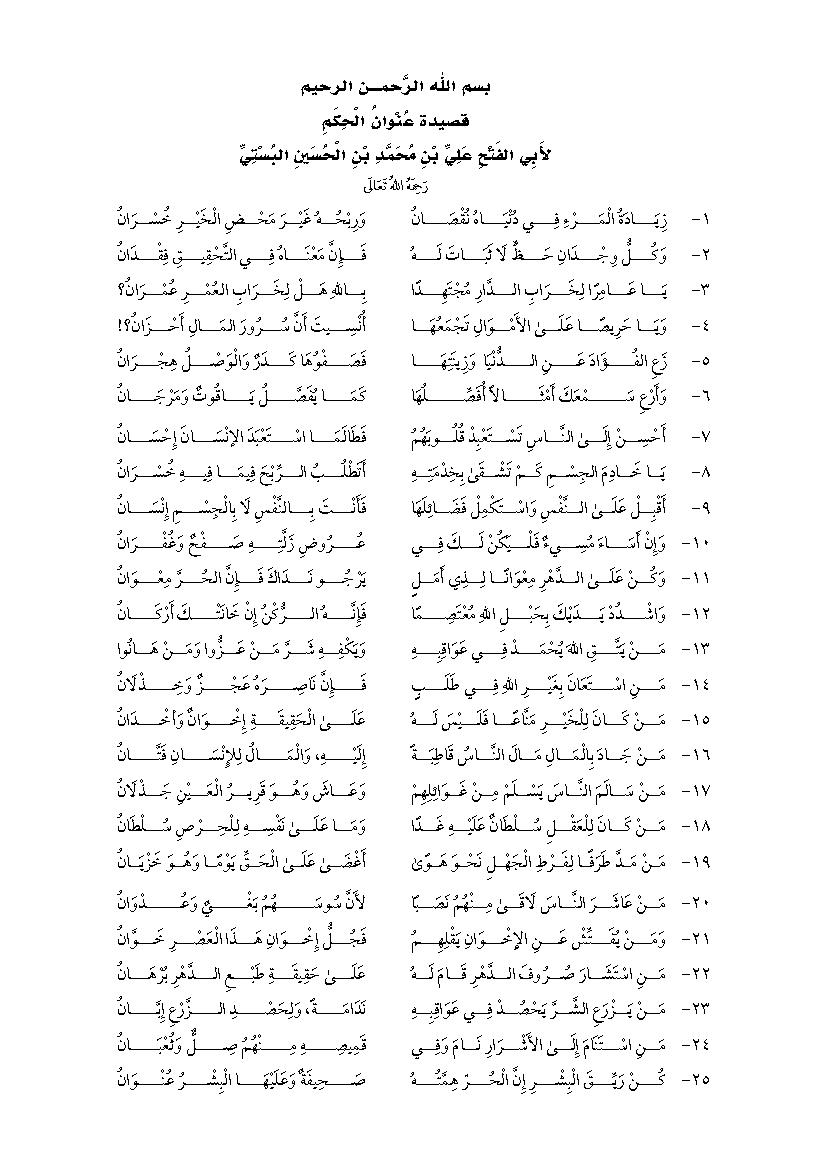 بسم الله الرَّحمـن الرحيم
قصيدة عُنْوانُ الْحِكَمِ
لأَبِي الفَتْحِ عَلِيِّ بْنِ مُحَمَّدِ بْنِ الْحُسَينِ البُسْتِيِّ
رَحِمَهُ اللهُ تَعَالَى
١- زِيَادَةُ الْمَرْءِ فِي دُنْيَاهُ نُقْصَانُ وَرِبْحُهُ غَيْرَ مَحْضِ الْخَيْرِ خُسْرَانُ
٢- وَكُلُّ وِجْدَانِ حَظٍّ لَا ثَبَاتَ لَهُ فَإِنَّ مَعْنَاهُ فِي التَّحْقِيقِ فِقْدَانُ
٣- يَا عَامِرًا لِخَرَابِ الدَّارِ مُجْتَهِدًا بِاللهِ هَلْ لِخَرَابِ العُمْرِ عُمْرَانُ؟
٤- وَيَا حَرِيصًا عَلَى الأَمْوَالِ تَجْمَعُهَا أُنْسِيتَ أَنَّ سُرُورَ المَالِ أَحْزَانُ؟!
٥- زَعِ الفُؤَادَ عَنِ الدُّنْيَا وَزِينَتِهَا فَصَفْوُهَا كَدَرٌ وَالْوَصْلُ هِجْرَانُ
٦- وَأَرْعِ سَمْعَكَ أَمْثَالاً أُفَصِّلُهَا كَمَا يُفَصَّلُ يَاقُوتٌ وَمَرْجَانُ
٧- أَحْسِنْ إِلَى النَّاسِ تَسْتَعْبِدْ قُلُوبَهُمُ فَطَالَمَا اسْتَعْبَدَ الإِنْسَانَ إِحْسَانُ
٨- يَا خَادِمَ الجِسْمِ كَمْ تَشْقَى بِخِدْمَتِهِ أَتَطْلُبُ الرِّبْحَ فِيمَا فِيهِ خُسْرَانُ
٩- أَقْبِلْ عَلَى النَّفْسِ وَاسْتَكْمِلْ فَضَائِلَهَا فَأَنْتَ بِالنَّفْسِ لَا بِالْجِسْمِ إِنْسَانُ
١٠- وَإِنْ أَسَاءَ مُسِيءٌ فَلْيَكُنْ لَكَ فِي عُرُوضِ زَلَّتِهِ صَفْحٌ وَغُفْرَانُ
١١- وَكُنْ عَلَى الدَّهْرِ مِعْوَانًا لِذِي أَمَلٍ يَرْجُو نَدَاكَ فَإِنَّ الحُرَّ مِعْوَانُ
١٢- وَاشْدُدْ يَدَيْكَ بِحَبْلِ اللهِ مُعْتَصِمًا فَإِنَّهُ الرُّكْنُ إِنْ خَانَتْكَ أَرْكَانُ
١٣- مَنْ يَتَّقِ اللهَ يُحْمَدْ فِي عَوَاقِبِهِ وَيَكْفِهِ شَرَّ مَنْ عَزُّوا وَمَنْ هَانُوا
١٤- مَنِ اسْتَعَانَ بِغَيْرِ اللهِ فِي طَلَبٍ فَإِنَّ نَاصِرَهُ عَجْزٌ وَخِذْلَانُ
١٥- مَنْ كَانَ لِلْخَيْرِ مَنَّاعًا فَلَيْسَ لَهُ عَلَى الْحَقِيقَةِ إِخْوَانٌ وَأَخْدَانُ
١٦- مَنْ جَادَ بِالْمَالِ مَالَ النَّاسُ قَاطِبَةً إِلَيْهِ، وَالْمَالُ لِلإِنْسَانِ فَتَّانُ
١٧- مَنْ سَالَمَ النَّاسَ يَسْلَمْ مِنْ غَوَائِلِهِمْ وَعَاشَ وَهُوَ قَرِيرُ الْعَيْنِ جَذْلَانُ
١٨- مَنْ كَانَ لِلْعَقْلِ سُلْطَانٌ عَلَيْهِ غَدَا وَمَا عَلَى نَفْسِهِ لِلْحِرْصِ سُلْطَانُ
١٩- مَنْ مَدَّ طَرْفًا لِفَرْطِ الْجَهْلِ نَحْوَ هَوًى أَغْضَى عَلَى الْحَقِّ يَوْمًا وَهُوَ خَزْيَانُ
٢٠- مَنْ عَاشَرَ النَّاسَ لَاقَى مِنْهُمُ نَصَبًا لأَنَّ سُوسَهُمُ بَغْيٌ وَعُدْوَانُ
٢١- وَمَنْ يُفَتِّشْ عَنِ الإِخْوَانِ يَقْلِهِمُ فَجُلُّ إِخْوَانِ هَذَا الْعَصْرِ خَوَّانُ
٢٢- مَنِ اسْتَشَارَ صُرُوفَ الدَّهْرِ قَامَ لَهُ عَلَى حَقِيقَةِ طَبْعِ الدَّهْرِ بُرْهَانُ
٢٣- مَنْ يَزْرَعِ الشَّرَّ يَحْصُدْ فِي عَوَاقِبِهِ نَدَامَةً، وَلِحَصْدِ الزَّرْعِ إِبَّانُ
٢٤- مَنِ اسْتَنَامَ إِلَى الأَشْرَارِ نَامَ وَفِي قَمِيصِهِ مِنْهُمُ صِلٌّ وَثُعْبَانُ
٢٥- كُنْ رَيِّقَ الْبِشْرِ إِنَّ الْحُرَّ هِمَّتُهُ صَحِيفَةٌ وَعَلَيْهَا الْبِشْرُ عُنْوَانُ